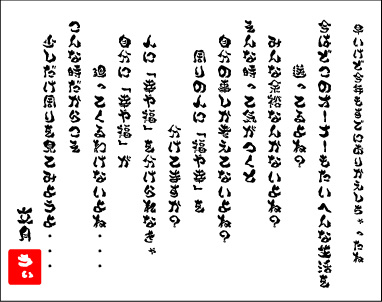 早いけど今年もすでにおりかえしちゃったね
今はどこのオーナーもたいへんな生活を
送ってるよね?
みんな余裕なんかないよね?
そんな時って気がつくと
自分の事しか考えてないよね?
周りの人に「福や幸」を
分けてますか?
人に「幸や福」を分けられなきゃ
自分に「幸や福」が
廻ってくるわけないよね・・・・
こんな時だからこそ
少しだけ周りを見てみようよ・・・・
文月
ちぃ